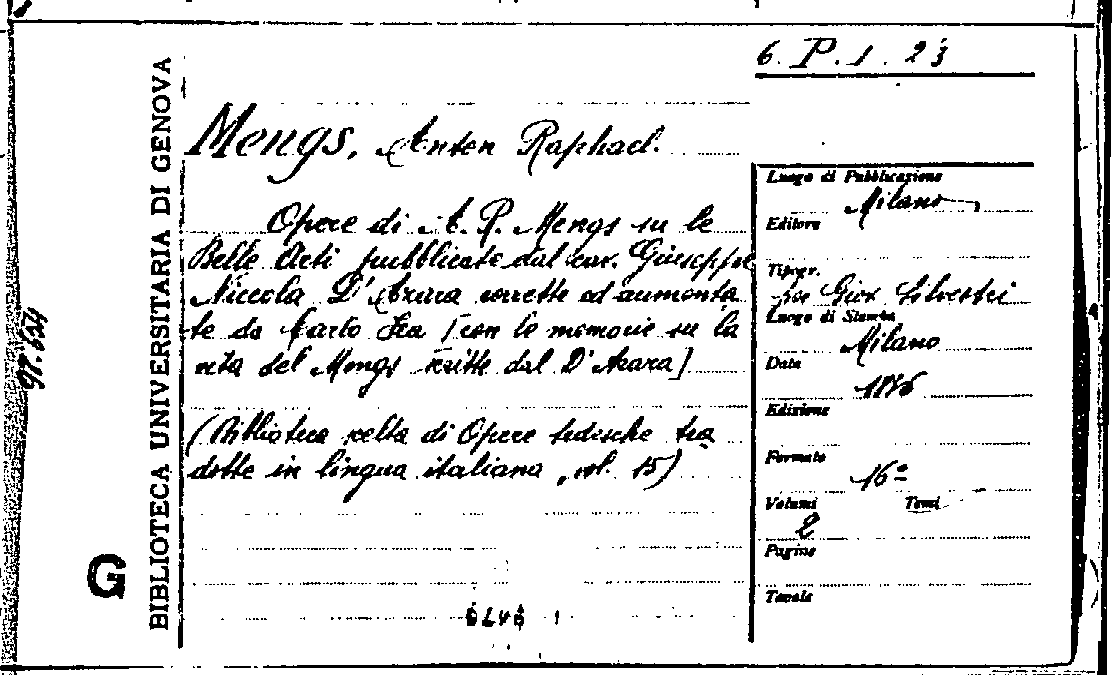 6. P. 1. 23
Mengs, Anton Raphael.
Opere di A. R. Mengs su le
Belle Arti pubblicate dal cav. Giuseppe
Niccola D'Azara corrette ed aumenta
te da Carlo Fea [con le memorie su la
vita del Mengs scritte dal D'Azara]
(Biblioteca scelta di Opere tedesche tra
dotte in lingua italiana, vol. 15)
Luogo di Pubblicazione
Milano
Editore
Tipogr.
per Giov. Silvestri
Luogo di Stampa
Milano
Data
Edizione
Formato
16º
Volumi Tomi
2
Pagine
Tavole
BIBLIOTECA UNIVERSITARIA DI GENOVA
G
97.654